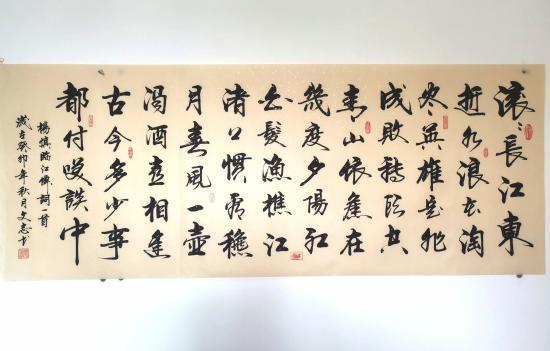 滚〻長江東
逝水浪花淘
尽英雄是非
成敗轉頭空
青山依舊在
幾度夕陽紅
白髮漁樵江
渚上慣看穐
月春風一壺
濁酒喜相逢
古今多少事
都付笑談中
楊慎臨江仙詞一首
歲在癸卯年秋月文志书